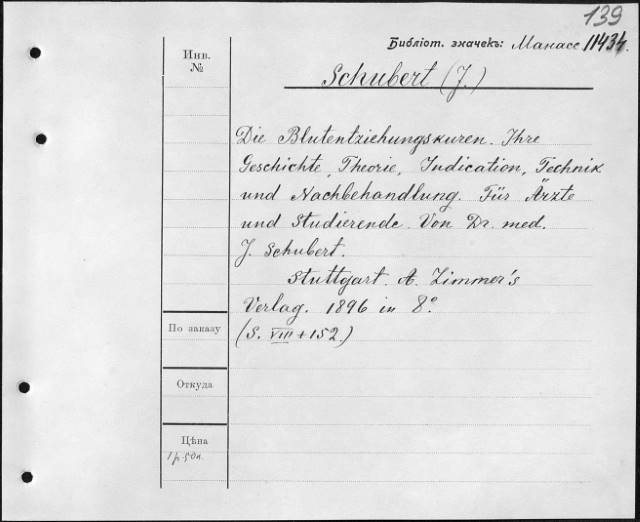 139
Библіот. значекъ: Манассе 11434.
Инв.
№
Schubert (J.)
Die Blutentziehungskuren. Ihre
Geschichte, Theorie, Indication, Technik
und Nachbehandlung. Für Ärzte
und Studierende. Von Dr. med.
J. Schubert.
Stuttgart. A. Zimmer's
Verlag. 1896 in 8º.
(S. VIII + 152.)
По заказу
Откуда
Цѣна
1 р. 50 к.